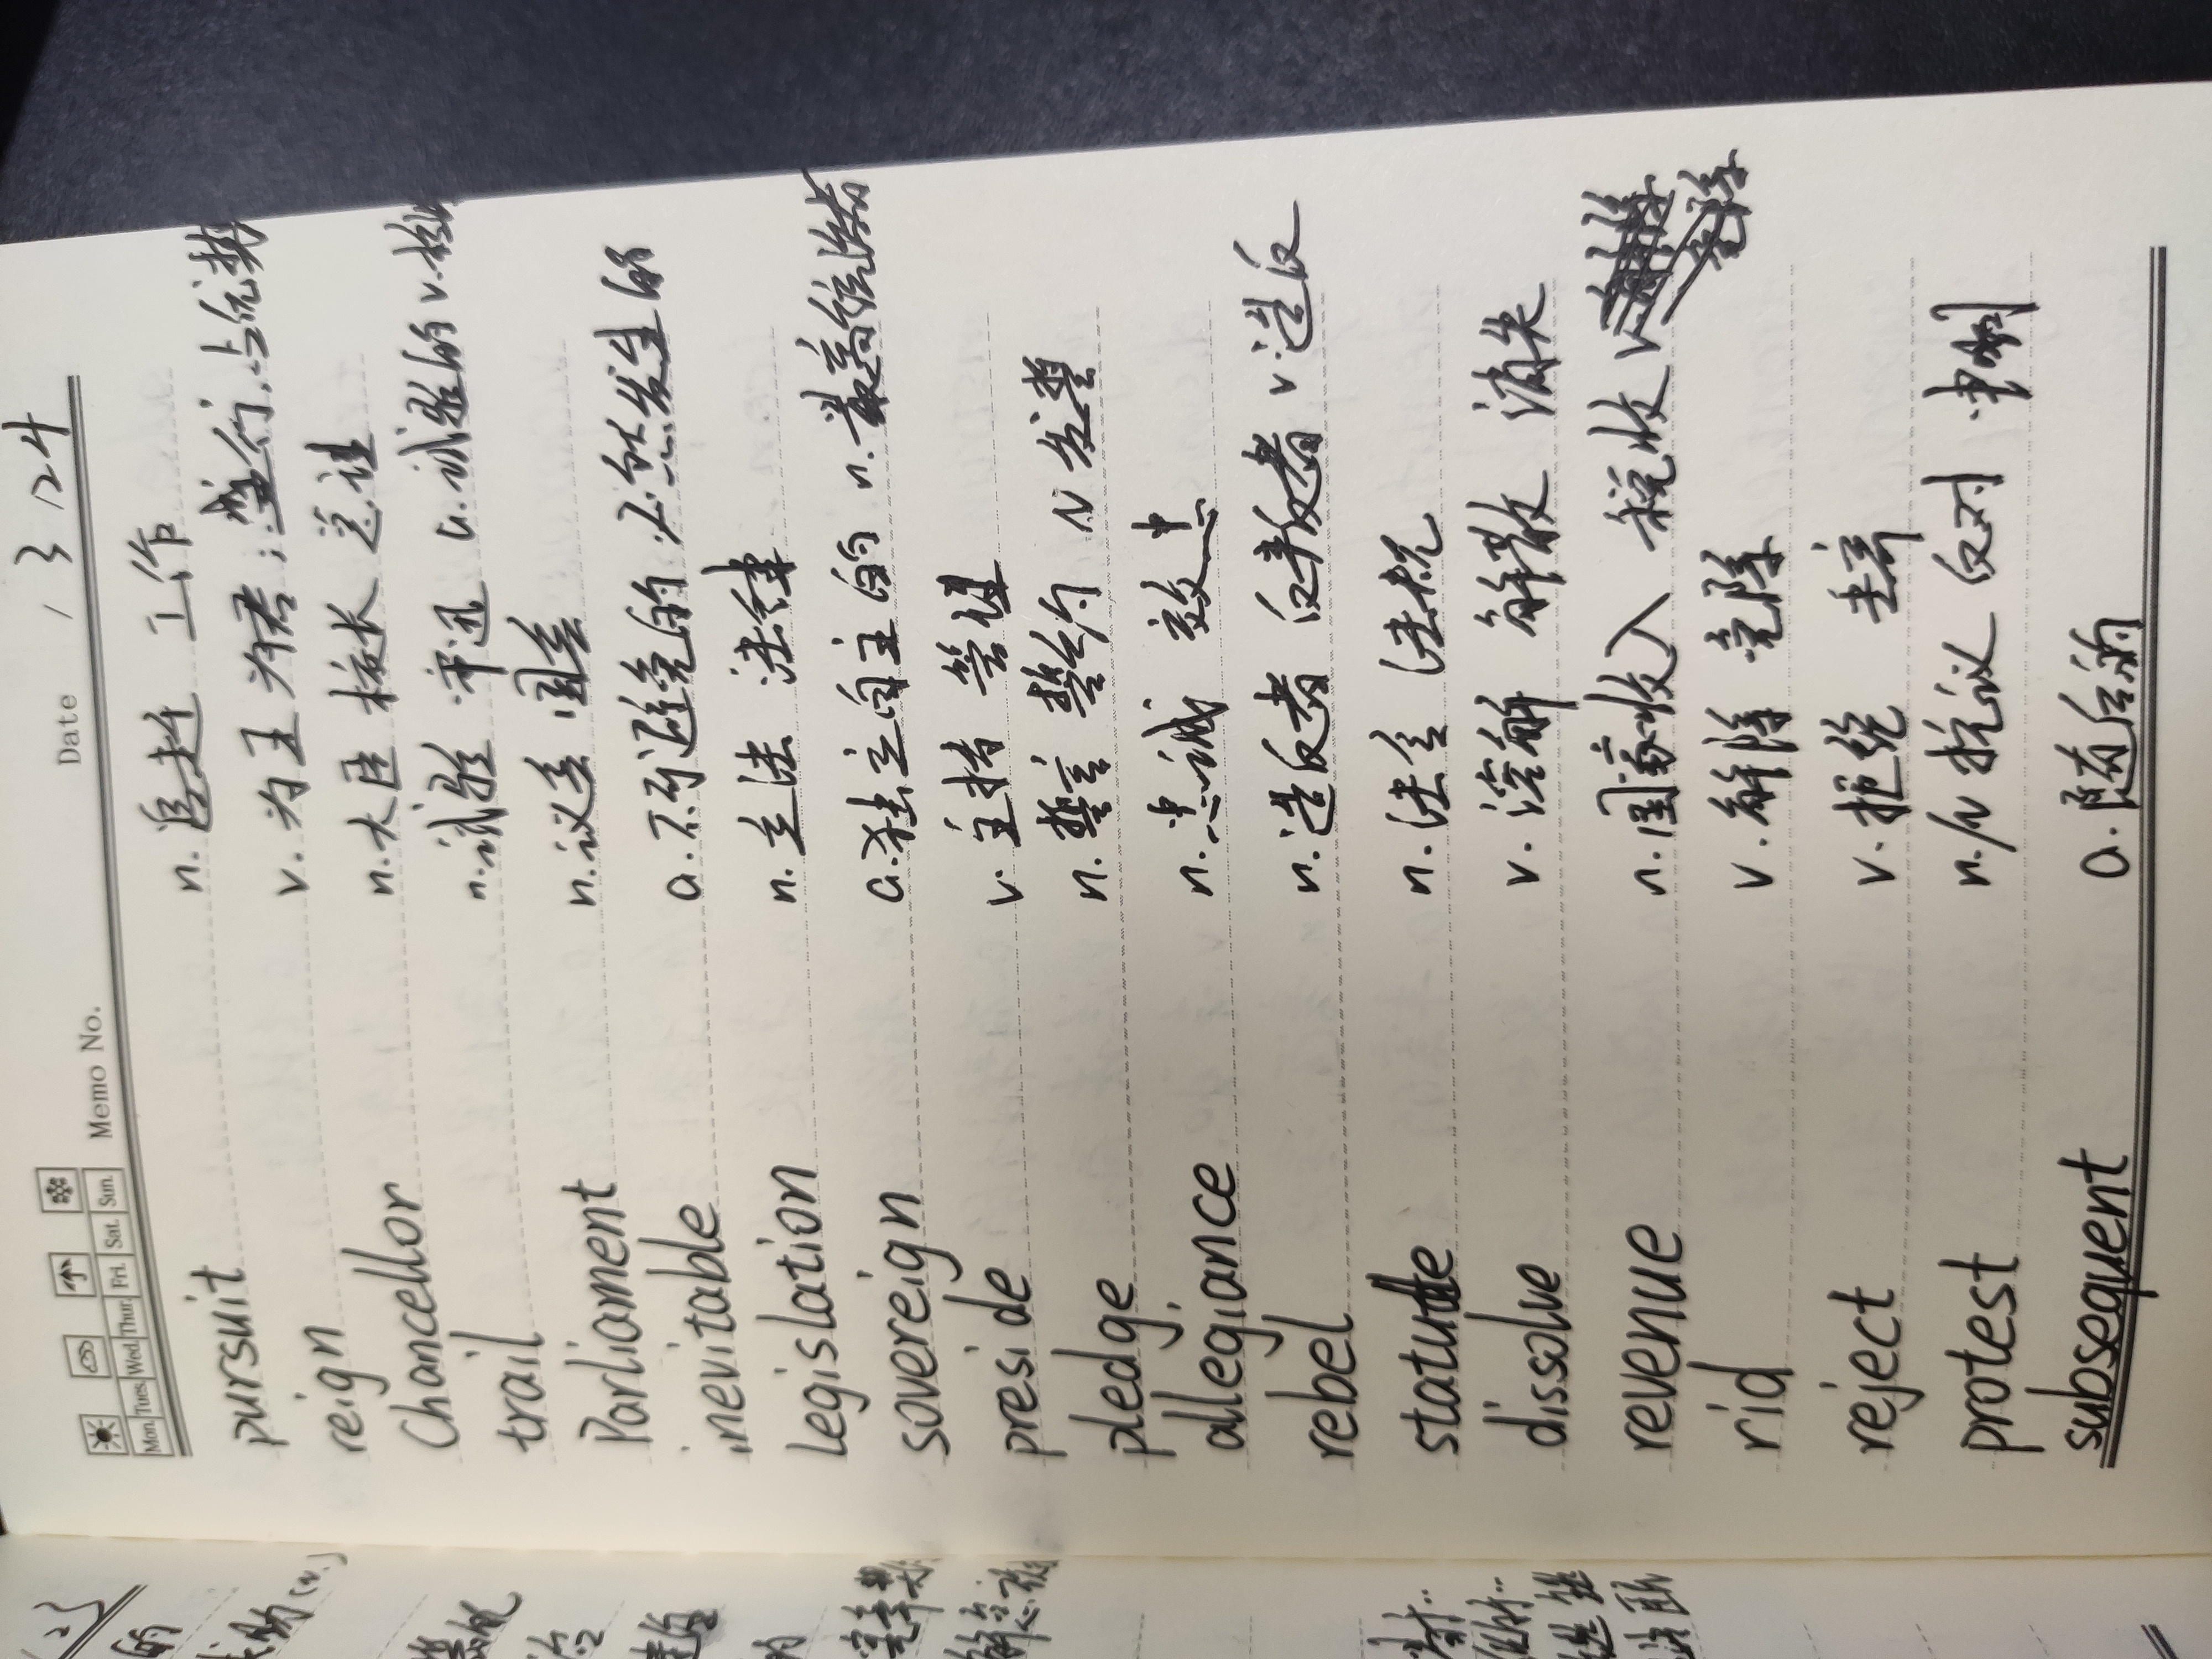 Mon. Tues. Wed. Thur. Fri. Sat. Sun.
Memo No. Date 1 3 24
pursuit n. 追赶 工作
reign v. 为王 为君；盛行，占优势
Chancellor n. 大臣 校长 总理
trail n. 试验 审迅 a. 试验的 v.
Parliament n. 议会 国会
inevitable a. 不可避免的，必然发生的
legislation n. 立法 法律
sovereign a. 独立自主的 n. 最高统治者
preside v. 主持 管理
pledge n. 誓言 誓约 N 发誓
allegiance n. 忠诚 效忠
rebel n. 造反者 反叛者 v 造反
statute n. 法令 法规
dissolve v. 溶解 解散 消失
revenue n. 国家收入 税收
rid v. 解除 免除
reject v. 拒绝
protest n./v 抗议 反对 申
subsequent a. 随后的